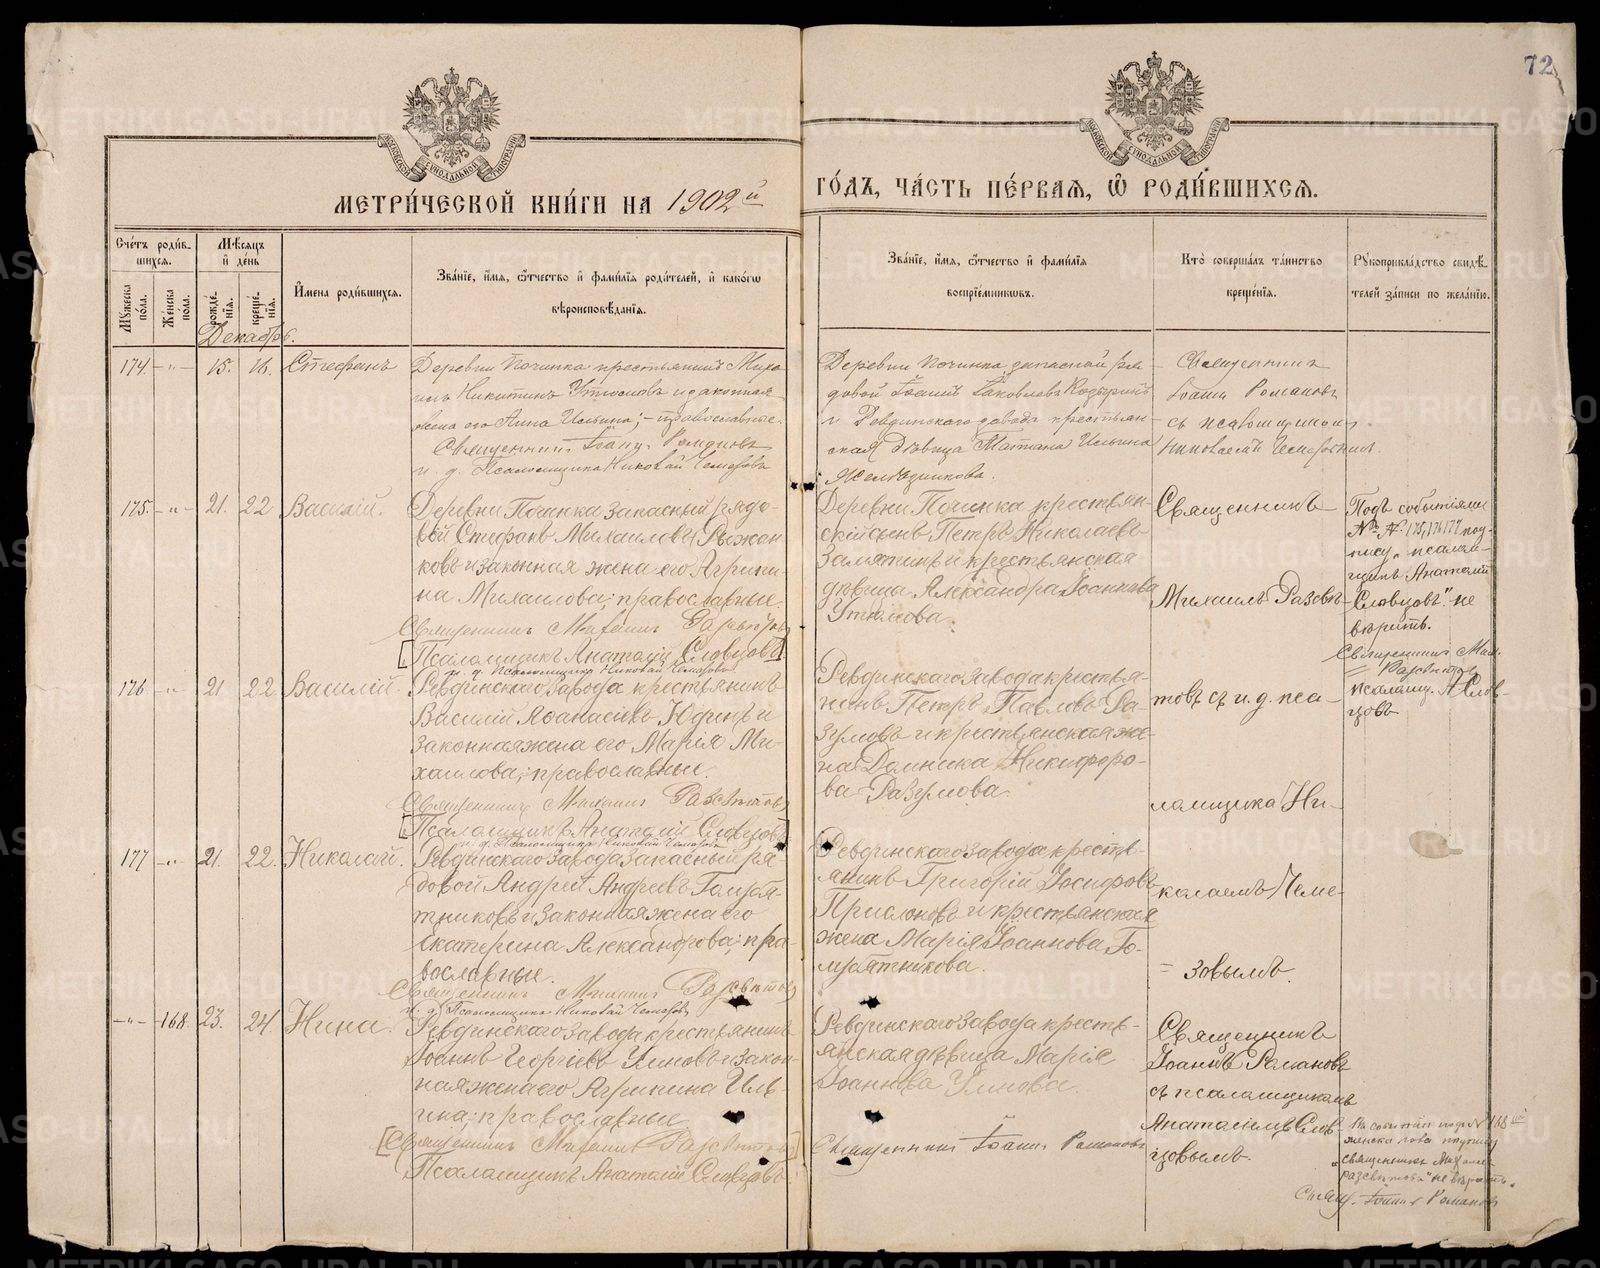 72
МОСКОВСКОЙ СѴНОДАЛЬНОЙ ТИПОГРАФІИ
МОСКОВСКОЙ СѴНОДАЛЬНОЙ ТИПОГРАФІИ
МЕТРИ́ЧЕСКОЙ КНИ́ГИ НА 1902й
ГО́ДЪ, ЧА́СТЬ ПЕ́РВАѦ, Ѡ҆ РОДИ́ВШИХСѦ.
Сче́тъ роди́в-
шихсѧ.
Мѣ́сѧцъ
и҆ де́нь
И҆мена роди́вшихсѧ.
Зва́нїе, и҆́мѧ, ѻ҆́тчество и҆ фами́лїѧ роди́телей, и҆ како́гѡ
вѣроисповѣ́данїѧ.
Зва́нїе, и҆́мѧ, ѻ҆́тчество и҆ фами́лїѧ
воспрїе́мниковъ.
Кто̀ соверша́лъ та́инство
креще́нїѧ.
Рꙋкоприкла́дство свидѣ́-
телей за́писи по жела́нїю.
Мꙋжеска
по́ла.
Же́нска
по́ла.
рожде́-
нїѧ.
креще́-
нїѧ.
Декабрь.
174 - „ - 15. 16. Стефанъ
Деревни Починка крестьянинъ Миха
илъ Никитинъ Утюмовъ и законная
жена его Анна Ильина; - православные.
Священникъ Іоаннъ Романовъ
и. д. Псаломщика Николай Чемезовъ
Деревни Починка запасной ря-
довой Іоаннъ Іаковлевъ
и Ревдинского завода крестьян-
ская девица Татіана Ильина
Железникова.
Священникъ
Іоаннъ Романовъ
съ псаломщикомъ
Николаемъ Чемезовымъ.
175. - „ - 21. 22 Василій.
Деревни Починка запасный рядо-
вой Стефанъ Михаиловъ Рыжан
ковъ и законная жена его Агрипи-
на Михаилова; православные.
Священникъ Михаилъ Разсвѣтовъ
[Псаломщикъ Анатолій Словцовъ]
и. д. Псаломщика Николай Чемезовъ
Деревни Починка крестьян-
скій сынъ Петръ Николаевъ
Замятинъ и крестьянская
дѣвица Александра Іоаннова
Утюмова.
Священникъ
Михаилъ Разсвѣ-
Подъ событіями
№№ 175, 176 177 под-
пись „псалом-
щикъ Анатолій
Словцовъ" не
вѣрить.
Священникъ Мих.
Разсвѣтовъ
псаломщ. А Слов-
цовъ
176 - „ - 21 22 Василій.
Ревдинскаго завода крестьянинъ
Василій Аѳанасіевъ Юдинъ и
законная жена его Марія Ми-
хаилова; православные.
Священникъ Михаилъ Разсвѣтовъ
[Псаломщикъ Анатолій Словцовъ]
и. д. Псаломщика Николай Чемезовъ
Ревдинскаго завода крестья-
нинъ Петръ Павловъ Ра-
зумовъ и крестьянская же-
на Домника Никифоро-
ва Разумова.
товъ съ и. д. пса-
ломщика Ни-
177 - „ - 21. 22. Николай.
Ревдинскаго завода запасный ря-
довой Андрей Андреевъ Голубя-
тниковъ и законная жена его
Екатерина Александрова; пра-
вославные.
Священникъ Михаилъ Разсвѣтовъ
и. д. Псаломщика Николай Чемезовъ
Ревдинскаго завода кресть-
янинъ Григорій Іосифовъ
Прислоновъ и крестьянская
жена Марія Іоаннова Го-
лубятникова.
колаемъ Чеме-
= зовымъ.
- „ - 168. 23. 24. Нина.
Ревдинскаго завода крестьянинъ
Іоаннъ Георгіевъ Улиновъ и закон-
ная жена его Агрипина Иль-
ина; православные
[Священникъ Михаилъ Разсвѣтовъ]
Псаломщикъ Анатолій Словцовъ
Ревдинскаго завода кресть-
янская дѣвица Марія
Іоаннова Улинова.
Священникъ Іоаннъ Романовъ
Священникъ
Іоаннъ Романовъ
съ псаломщикомъ
Анатоліемъ Слов
цовымъ.
На событіи подъ № 168й
женска пола подпись
„священникъ Михаилъ
Разсвѣтовъ" не вѣрить.
Свящ. Іоаннъ Романовъ
METRIKI.GASO-URAL.RU